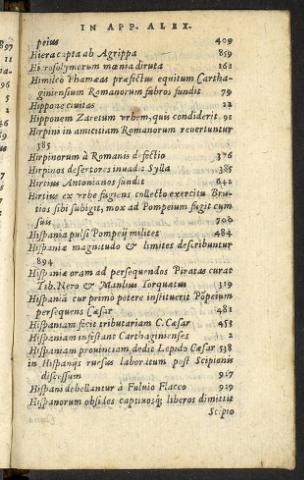 IN APP. ALEX.
peius 409
Hiera capta ab Agrippa 859
Hierosolymorum mœnia diruta 161
Himilco Phameas præfectus equitum Cartha-
giniensium Romanorum subros fundit 79
Hippone ciuitas 22
Hipponem Zaretum vrbem, quis condiderit 91
Hirpini in amicitiam Romanorum reuertuntur
385
Hirpinorum à Romanis defectio 376
Hirpinos desertores inuadit Sylla 385
Hirtius Antonianos fundit 641
Hirtius ex vrbe fugiens collecto exercitu Bru-
tios sibi subigit, mox ad Pompeium fugit cum
suis 700
Hispania pulsi Pompeij milites 484
Hispaniæ magnitudo & limites describuntur
894
Hispaniæ oram ad persequendos Piratas curat
Tib. Nero & Manlius Torquatus 319
Hispaniā cur primo petere instituerit Pōpeium
persequens Cæsar 481
Hispaniam fecit tributariam C. Cæsar 458
Hispaniam infestant Carthaginenses 2
Hispaniam prouinciam dedit Lepido Cæsar 538
in Hispanos rursus laboratum post Scipionis
discessum 927
Hispani debellantur à Fuluio Flacco 929
Hispanorum obsides captiuosq; liberos dimittit
Scipio